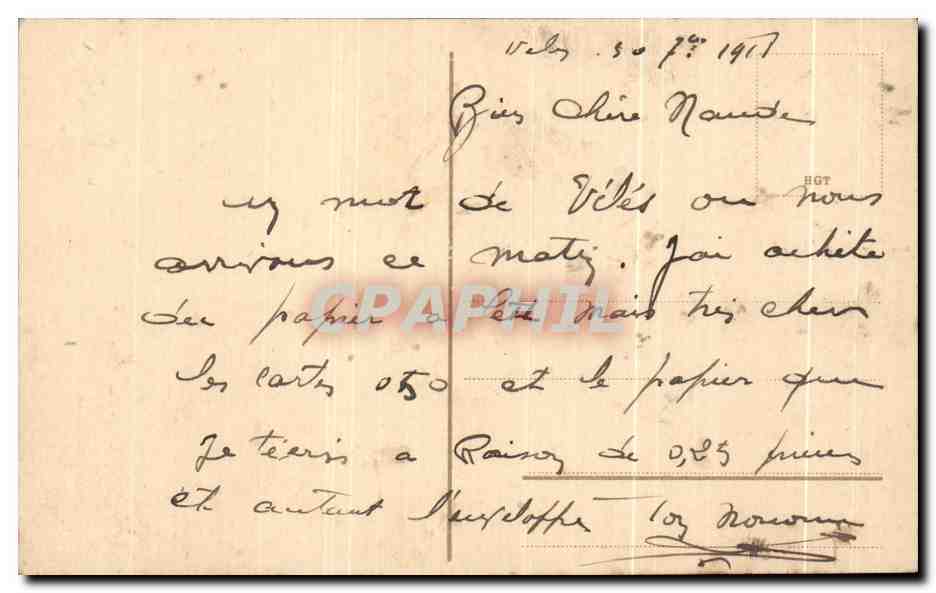 30 7bre 191
Bien chère Nande
un mot de Vélés ou nous
arrivons ce matin. J'ai acheté
du papier a lettre mais très cher
les cartes 0,50 et le papier que
Je t'ecris a Raison de 0,25 
et autant l'enveloppe Ton
HGT
CPAPHIL